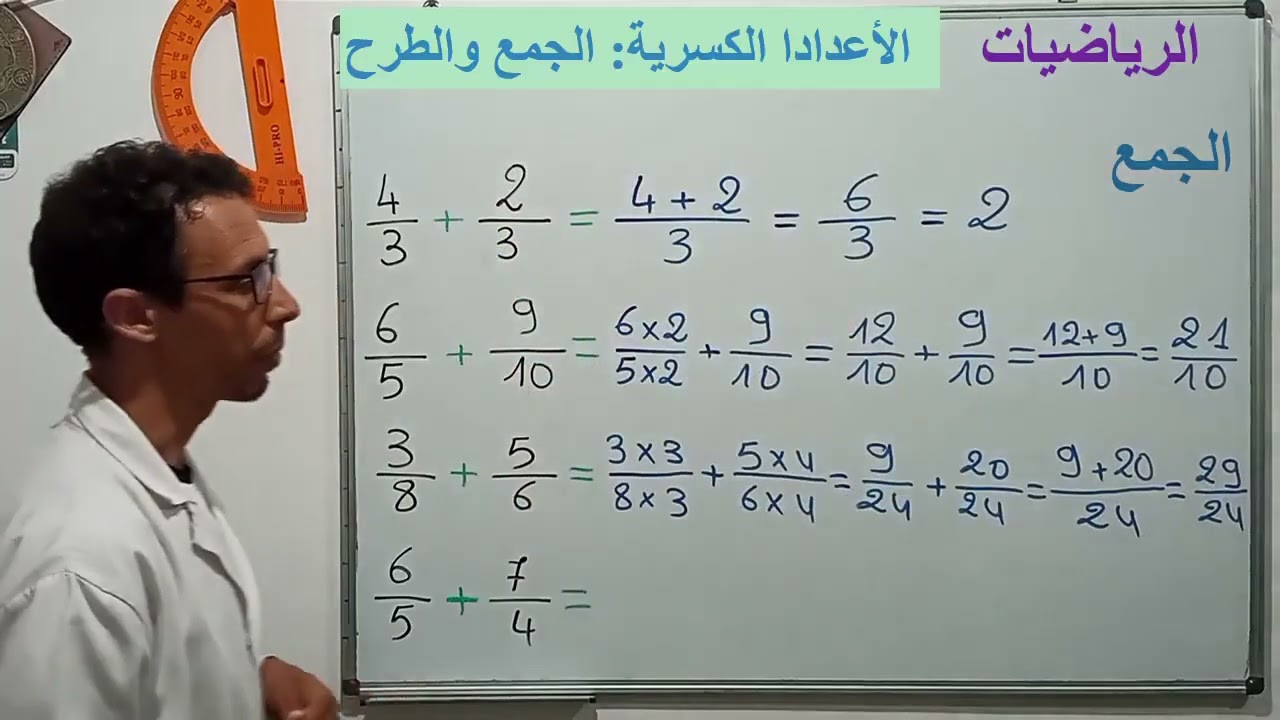 الرياضيات
الأعدادا الكسرية: الجمع والطرح
الجمع
4/3 + 2/3 = (4 + 2)/3 = 6/3 = 2
6/5 + 9/10 = (6×2)/(5×2) + 9/10 = 12/10 + 9/10 = (12+9)/10 = 21/10
3/8 + 5/6 = (3×3)/(8×3) + (5×4)/(6×4) = 9/24 + 20/24 = (9+20)/24 = 29/24
6/5 + 7/4 =
HI-PRO
90